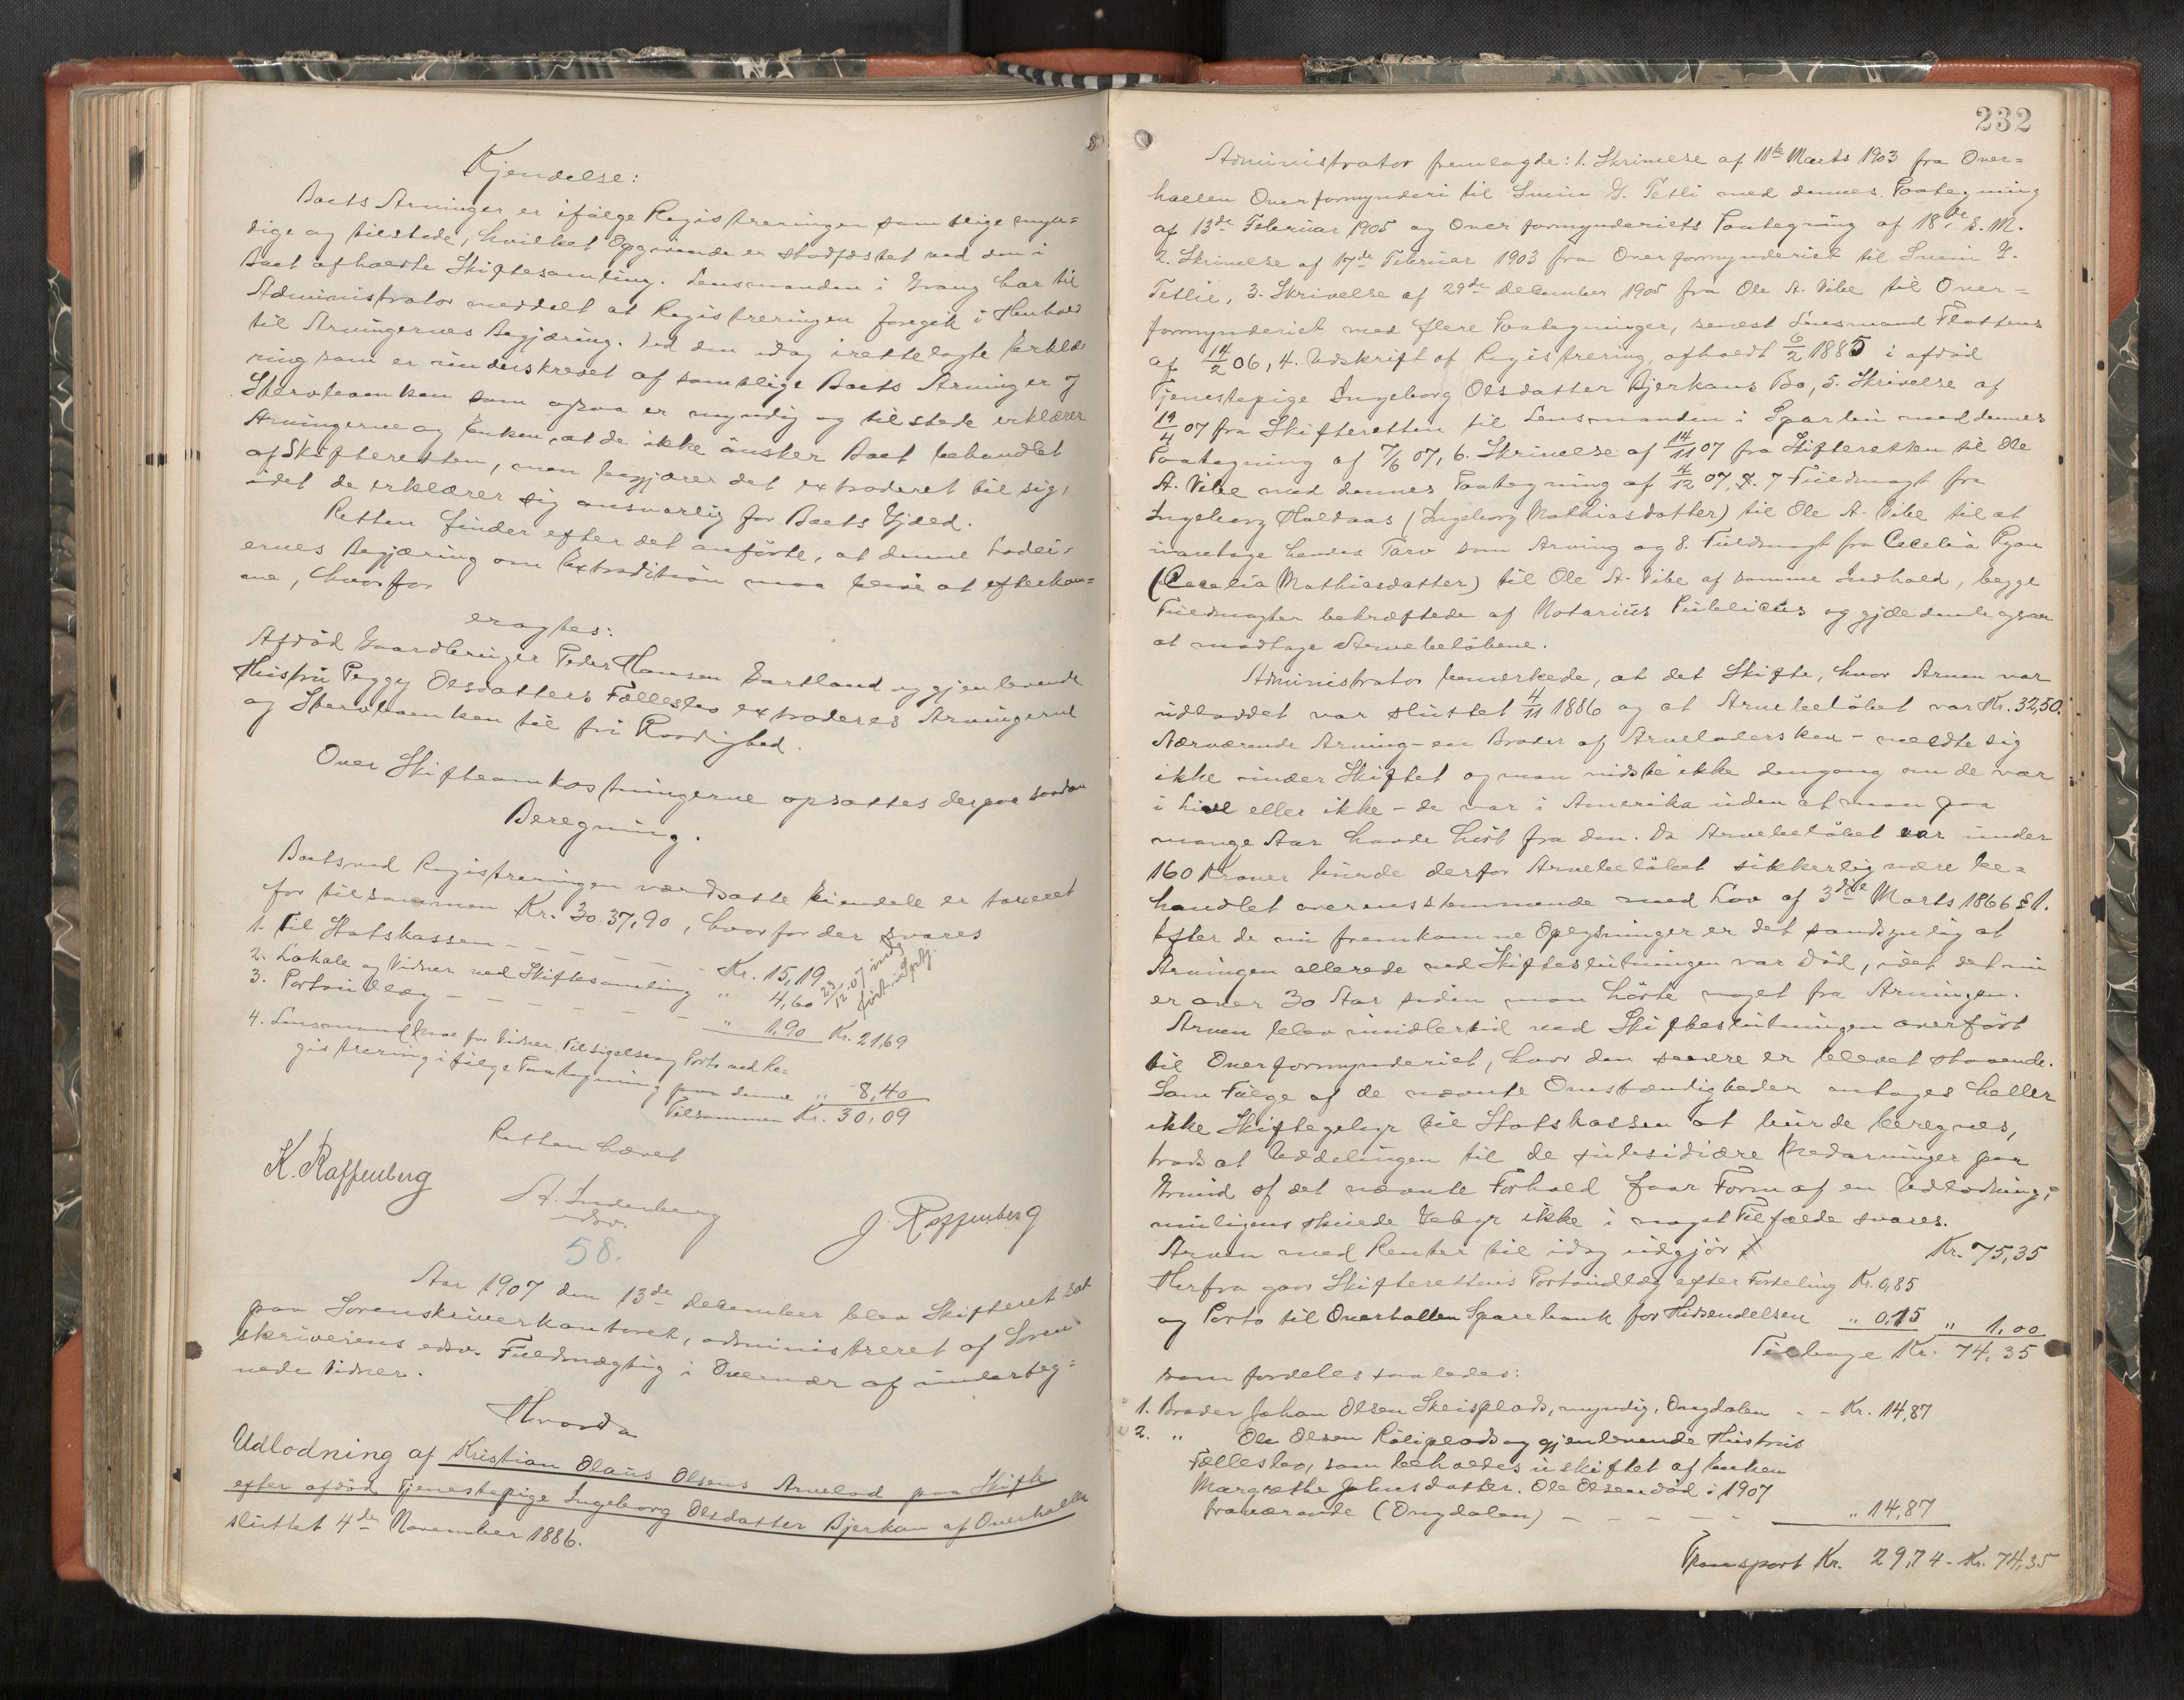 Kjendelse:
Boets Arvinger er ifølge Registreringen samtlige myn=
dige og tilstede, hvilket Opgivende er stadfæstet ved den i
Boet afholdte Skiftesamling. Lensmanden i Grong har til
Administrator meddelt at Registreringen foregik i Henhold
til Arvingernes Begjæring. Ved den idag irettelagte Erklæ-
ring som er underskrevet af samtlige Boets Arvinger og
Stervboenken som ogsaa er myndig og tilstede erklærer
Arvingerne og Enken, at de ikke ønsker Boet behandlet
af Skifteretten, men begjærer det extraderet til sig,
idet de erklærer sig ansvarlig for Boets Gjæld.
Retten finder efter det anførte, at denne Lodei-
ernes Begjæring om Extradition maa blive at efterkom=
me, hvorfor
eragtes:
Afdød Gaardbruger Peder Hansen Gartland og gjenlevende
Hustru Peggy Olsdatters Fællesbo extraderes Arvingerne
og Stervboenken til fri Raadighed.
Over Skifteomkostningerne opsattes derpaa saadan
Beregning.
Boets ved Registreringen værdsatte Eiendele er taxeret
for tilsammen Kr. 3037,90, hvorfor der svares
1. Til Statskassen - - - - Kr. 15,19
2. Lokale og Vidner ved Skiftesamling " 4,60
23/12-07
3. Portoudlæg - - - - - " 1,90 Kr. 21,69
4. Lensmand for Vidner, Tilsigelse og Porto ved Re=
gistrering ifølge Paategning paa denne " 8,40
Tilsammen Kr. 30,09
Retten hævet
K. Raffenberg
A. Inderberg
edsv.
J Raffenberg
58.
Aar 1907 den 13de December blev Skifteret sat
paa Sorenskriverkontoret, administreret af Soren-
skriverens edsv. Fuldmægtig i Overvær af underteg=
nede Vidner.
Hvorda
Udlodning af Kristian Olaus Olsens Arvelod paa Skifte
efter afdød Tjenestepige Ingeborg Olsdatter Bjerkan af Overhallen
sluttet 4de November 1886.
232
Administrator fremlagde: 1. Skrivelse af 11te Marts 1903 fra Over=
hallen Overformynderi til Svein G. Tetli med dennes Paategning
af 13de Februar 1905 og Overformynderiets Paategning af 18de s. M.
2. Skrivelse af 17de Februar 1903 fra Overformynderiet til Svein G.
Tetlie, 3. Skrivelse af 29de December 1905 fra Ole A. Vibe til Over=
formynderiet med flere Paategninger, senest Lensmand Flottens
af 14/2 06, 4. Udskrift af Registrering, afholdt 6/2 1885 i afdød
Tjenestepige Ingeborg Olsdatter Bjerkans Bo, 5. Skrivelse af
19/4 07 fra Skifteretten til Lensmanden i Sparbu med dennes
Paategning af 7/6 07, 6. Skrivelse af 14/11 07 fra Skifteretten til Ole
A. Vibe med dennes Paategning af 4/12 07, 7 Fuldmagt fra
Ingeborg Haldaas (Ingeborg Mathiasdatter) til Ole A. Vibe til at
varetage hendes Tarv som Arving og 8. Fuldmagt fra Cecelia Ryan
(Cecelia Mathiasdatter) til Ole A. Vibe af samme Indhold, begge
Fuldmagter bekræftede af Notarius Publicus og gjældende ogsaa
at modtage Arvebeløbene.
Administrator bemærkede, at det Skifte, hvor Arven var
udloddet var sluttet 4/11 1886 og at Arvebeløbet var Kr. 32,50.
Nærværende Arving - en Broder af Arveladersken - meldte sig
ikke under Skiftet og man vidste ikke dengang om de var
i Live eller ikke - de var i Amerika uden at man paa
mange Aar havde hørt fra dem. Da Arvebeløbet var under
160 Kroner burde derfor Arvebeløbet sikkerlig være be=
handlet overensstemmende med Lov af 3die Marts 1866 § 1.
Efter de nu fremkomne Oplysninger er det sandsynlig at
Arvingen allerede ved Skifteslutningen var død, idet det nu
er over 30 Aar siden man hørte noget fra Arvingen.
Arven blev imidlertid ved Skifteslutningen overført
til Overformynderiet, hvor den senere er blevet staaende.
Som Følge af de nævnte Omstændigheder antages heller
ikke Skiftegebyr til Statskassen at burde beregnes,
trods at Uddelingen til de subsidiære Medarvinger paa
Grund af det nævnte Forhold faar Form af en Udlodning;
muligens skulde Gebyr ikke i noget Tilfælde svares.
Arven med Renter til idag udgjør Kr. 75,35
Herfra gaar Skifterettens Portoudlæg efter Fordeling Kr. 0,85
og Porto til Overhallen Sparebank for Hidsendelsen " 0,15 " 1,00
Tilbage Kr. 74,35
som fordeles saaledes:
1. Broder Johan Olsen Skeisplads, myndig, Ongdalen - - Kr. 14,87
2. " Ole Olsen Røliplads og gjenlevende Hustrus
Fællesbo, som beholdes uskiftet af Enken
Margrethe Johnsdatter. Ole Olsen død i 1907
fraværende (Ongdalen) - - - - - " 14,87
Transport Kr. 29,74 - Kr. 74,35